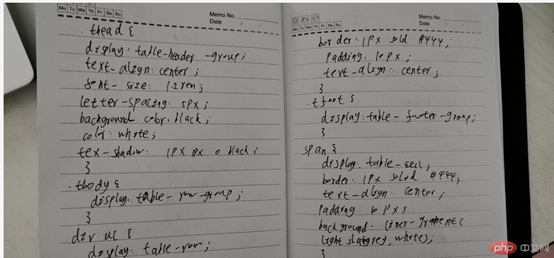 Mo Tu We Th Fr Sa Su
Memo No.
Date
.thead {
display: table-header-group;
text-align: center;
font-size: 1.2rem;
letter-spacing: 5px;
background color: black;
color: white;
tex-shadow: 1px 1px 0 black;
}
.tbody {
display: table-row-group;
}
div ul {
display: table-row;
Memo No.
Date
border: 1px solid #444;
padding: 10px;
text-align: center;
}
.tfoot {
display: table-footer-group;
}
span {
display: table-cell;
border: 1px solid #444;
text-align: center;
padding 10px;
background:
light slategrey, white);
}
php 中文网